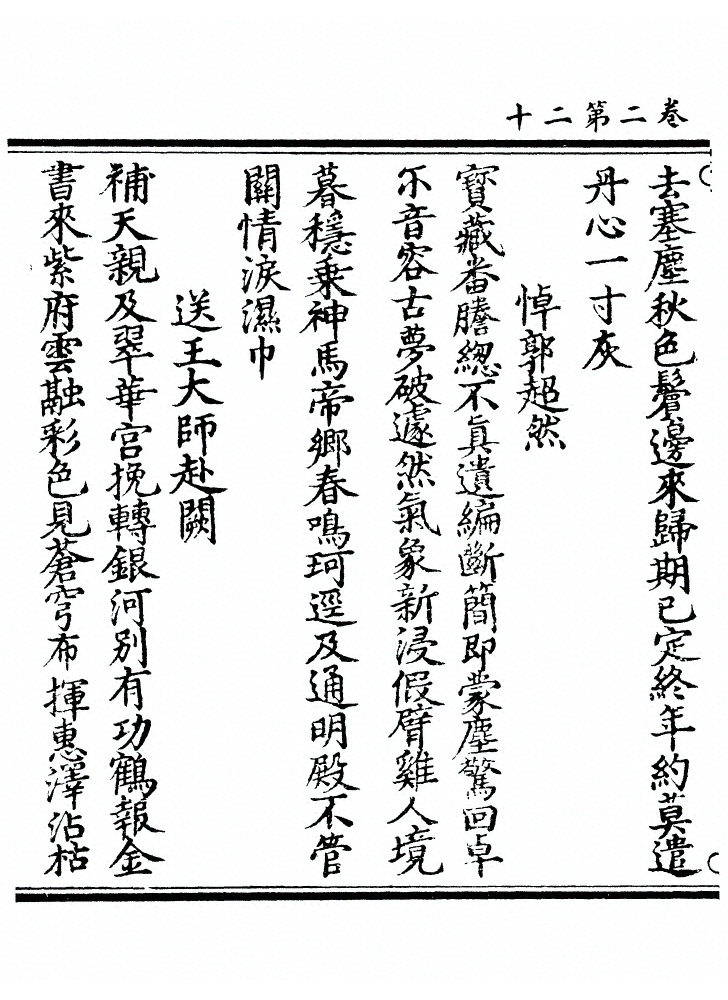 卷二第二十
去塞塵秋色鬢邊來歸期已定終年約莫遣
丹心一寸灰
悼郭超然
寶藏番謄總不眞遺編斷簡即蒙塵驚回卓
尒音容古夢破遽然氣象新浸假臂雞人境
暮穩乗神馬帝鄉春鳴珂逕及通明殿不管
關情淚濕巾
送王大師赴闕
補天親及翠華宮挽轉銀河別有功鶴報金
書來紫府雲融彩色見蒼穹布揮惠澤沾枯